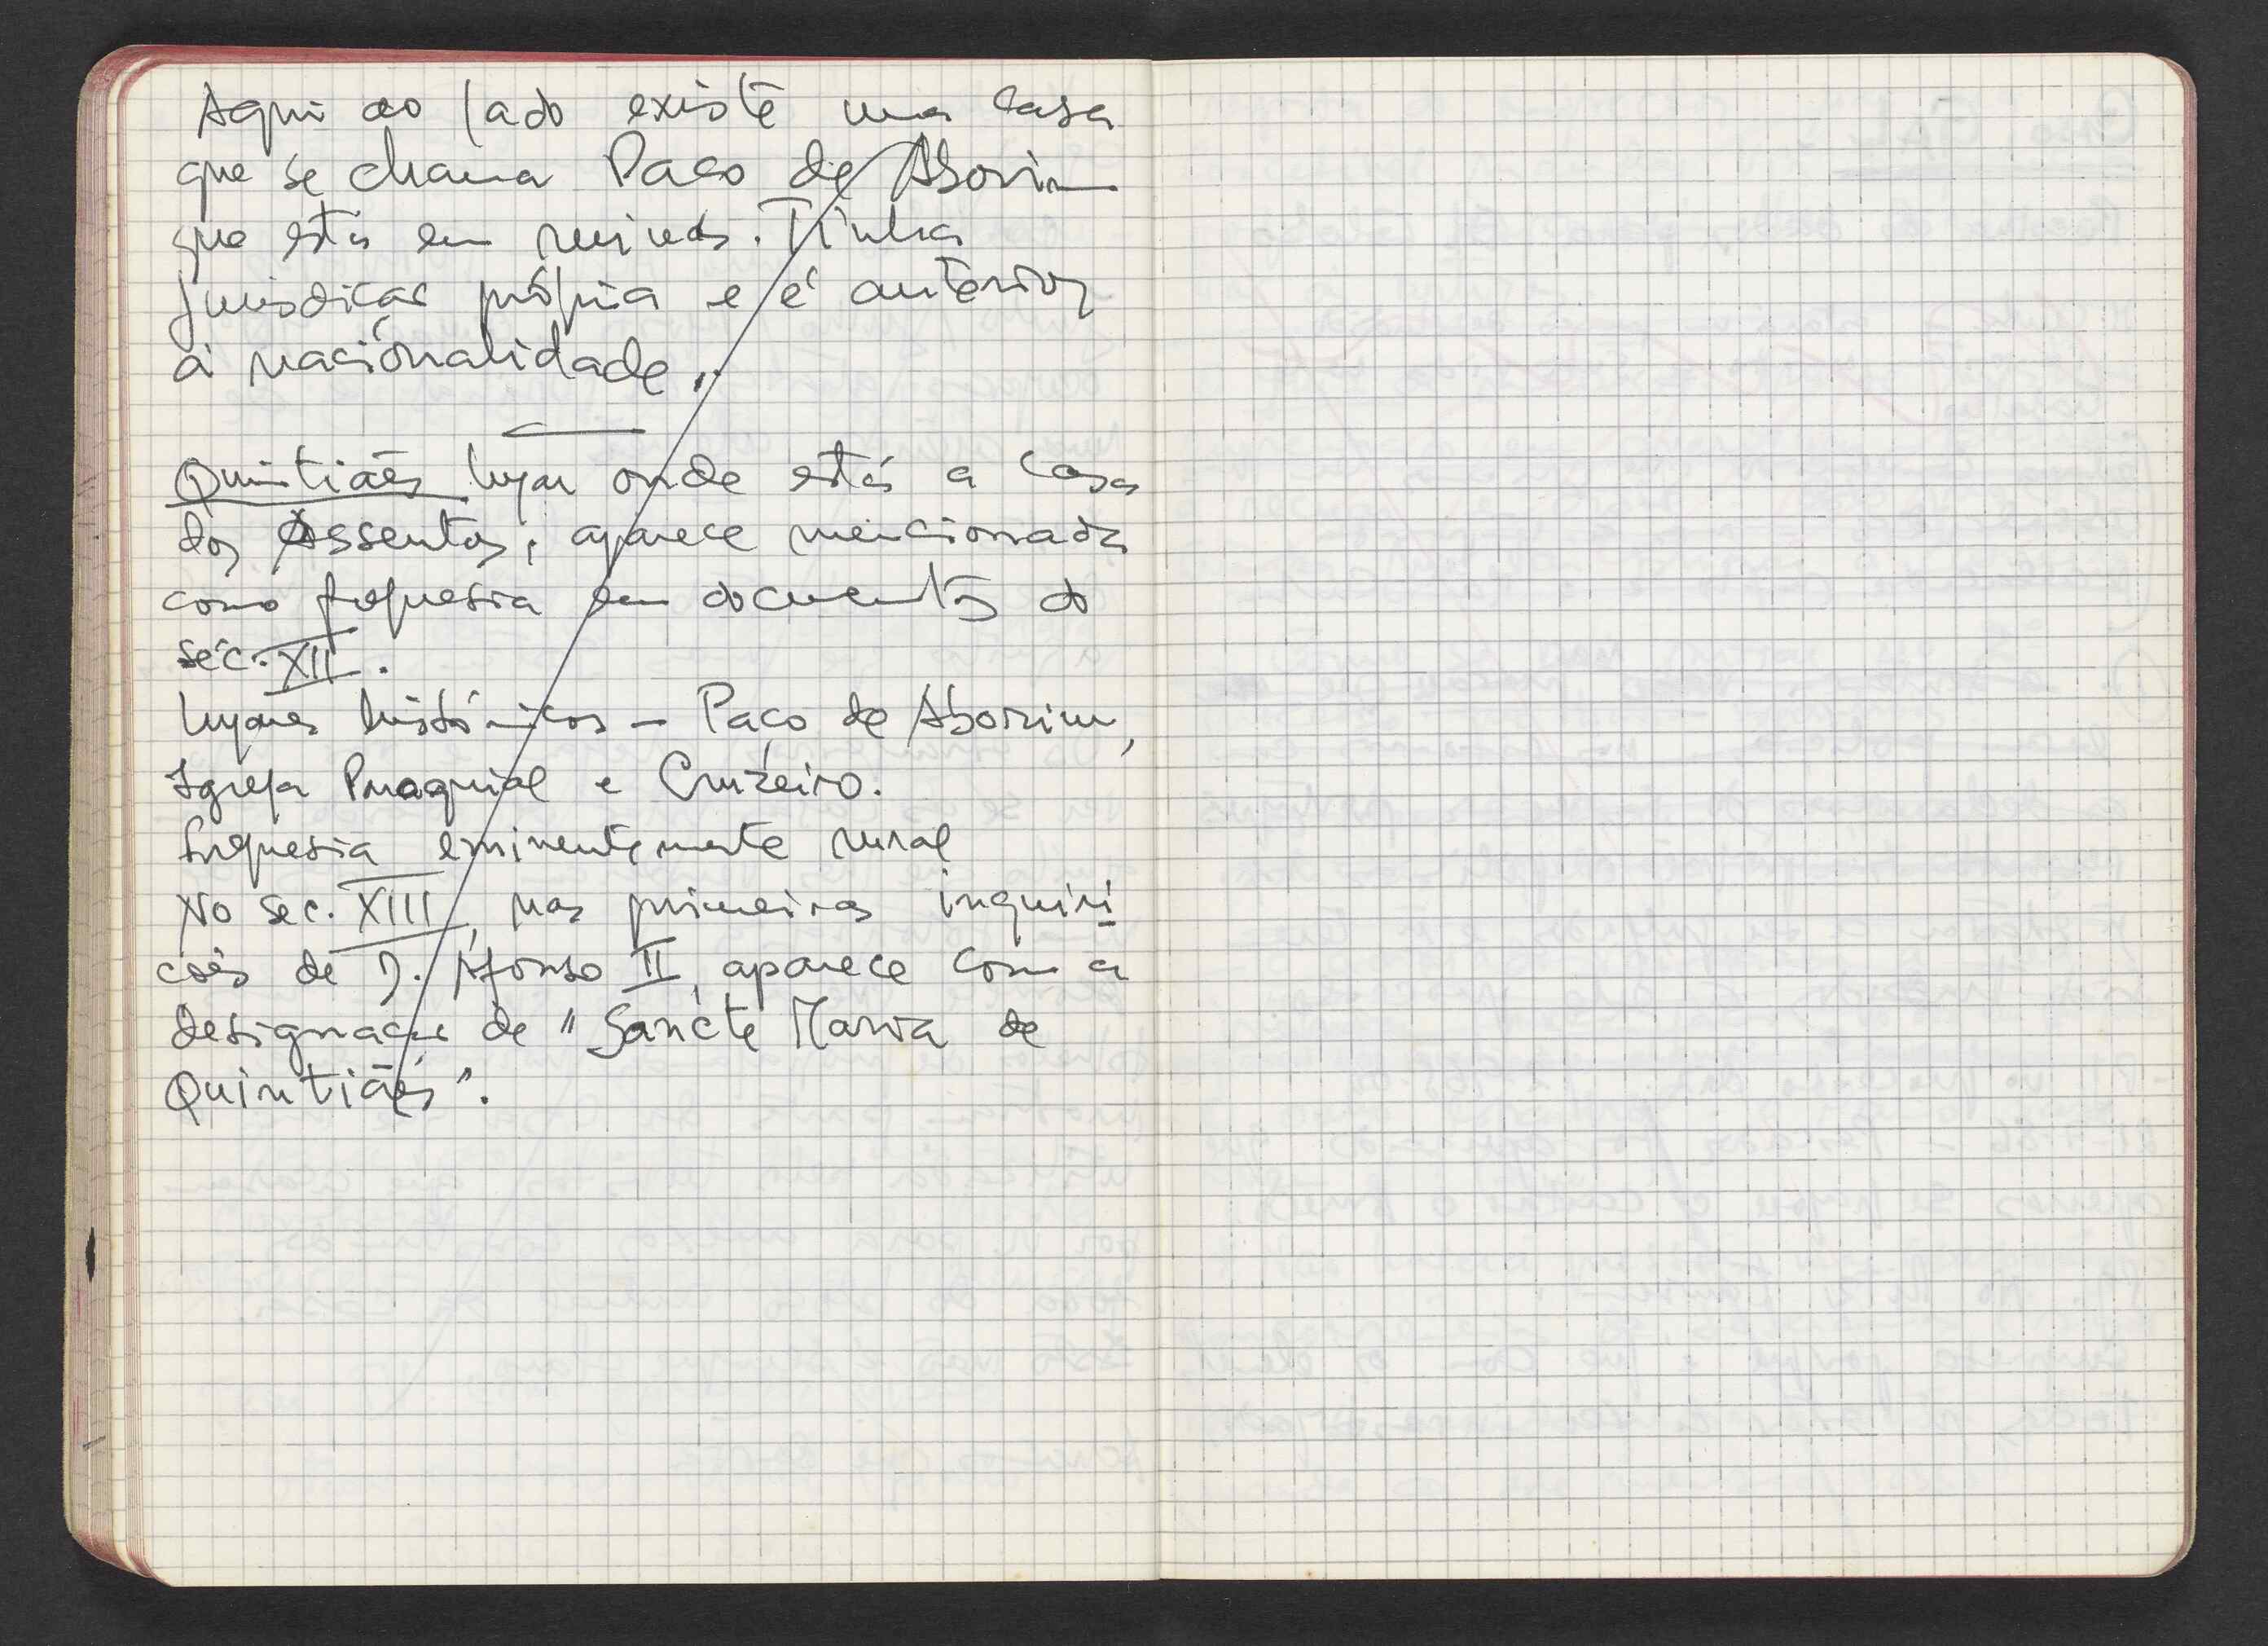 Aqui ao lado existe uma casa
que se chama Paço de Aborim
que está em ruinas. Tinha
jurisdição própria e é anterior
à nacionalidade".
Quintiães lugar onde está a casa
dos Assentos, aparece mencionada
como freguesia em documentos do
séc. XII.
lugares históricos – Paço de Aborim,
Igreja Paroquial e Cruzeiro.
freguesia eminentemente rural
No sec. XIII, nas primeiras inquiri
cões de D. Afonso II, aparece com a
designação de "Sancte Maria de
Quintiães".